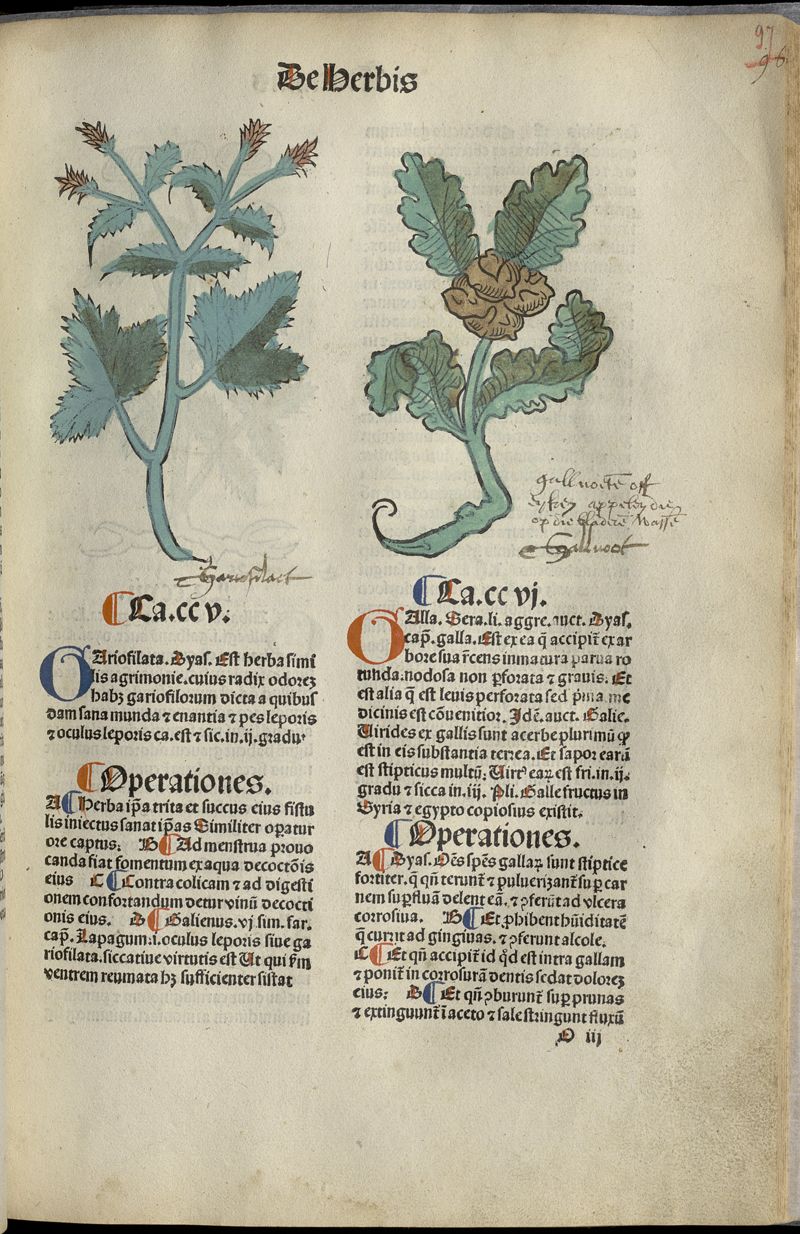 97
96
De Herbis
Gariofilact
Ca.cc v.
GAriofilata. Dyas. Est herba simi
lis agrimonie. cuius radix odoreꝫ
habꝫ gariofilorum dicta a quibus
dam sana munda ⁊ enantia ⁊ pes leporis
⁊ oculus leporis ca. est ⁊ sic. in .ij. gradu.
Operationes.
A Herba ip̄a trita et succus eius fistu
lis iniectus sanat ip̄as Similiter oꝑatur
ore captus: B Ad menstrua prouo
canda fiat fomentum ex aqua decoctōis
eius C Contra colicam ⁊ ad digesti
onem confortandum detur vinū decocti
onis eius. D Galienus. vj sim. far.
cap̄. Lapagum .i. oculus leporis siue ga
riofilata. siccatiue virtutis est Ut qui fm̄
ventrem reumata hꝫ sufficienter sistat
gallnoetē off
eyken appelen die
op die bladerē wassē
Gallnoot
Ca.cc vj.
GAlla. Sera. li. aggre. auct. Dyas.
cap̄. galla. Est ex ea q̄ accipit̄ ex ar
bore sua r̄cens inmatura parua ro
tunda: nodosa non ꝑforata ⁊ grauis: Et
est alia q̄ est leuis perforata sed p̄ma me
dicinis est cōuenitior. Idē. auct. Galie.
Uirides ex gallis sunt acerbe plurimū ꝙ
est in eis substantia terrea. Et sapor earū
est stipticus multū: Uirt᷒ eaꝝ est fri. in .ij.
gradu ⁊ sicca in .iij. Pli. Galle fructus in
Syria ⁊ egypto copiosius existit.
Operationes.
A Dyas. Oēs sp̄es gallaꝝ sunt stiptice
fortiter. q̄ qn̄ terunt̄ ⁊ puluerizant̄ suꝑ car
nem suꝑfluā delent eā. ⁊ ꝯferūt ad vlcera
corrosiua. B Et ꝓhibent hūiditatē
q̄ currit ad gingiuas. ⁊ ꝯferunt alcole.
C Et qn̄ accipit̄ id qd̄ est intra gallam
⁊ ponit̄ in corrosurā dentis sedat doloreꝫ
eius: D Et qn̄ ꝯburunt̄ suꝑ prunas
⁊ extinguunt̄ ī aceto ⁊ sale stringunt fluxū
O iij